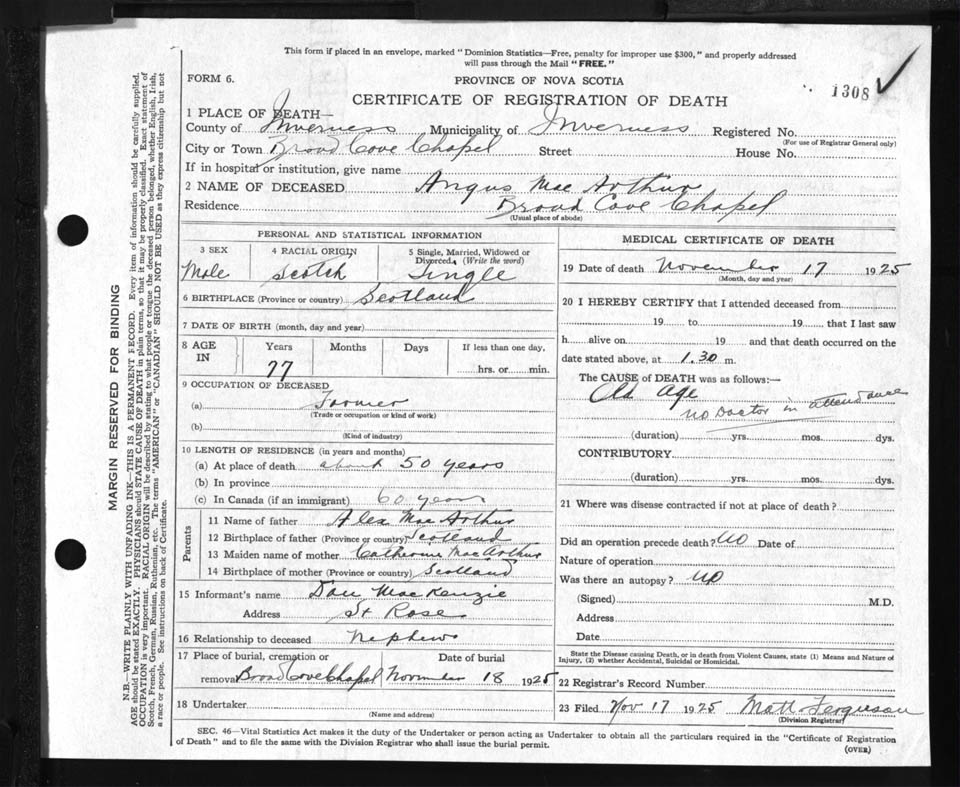 This form if placed in an envelope, marked "Dominion Statistics—Free, penalty for improper use $300," and properly addressed
will pass through the Mail "FREE."
FORM 6.
PROVINCE OF NOVA SCOTIA
1308
CERTIFICATE OF REGISTRATION OF DEATH
1 PLACE OF DEATH—
County of Inverness Municipality of Inverness Registered No.
(For use of Registrar General only)
City or Town Broad Cove Chapel Street House No.
If in hospital or institution, give name
2 NAME OF DECEASED Angus Mac Arthur
Residence Broad Cove Chapel
(Usual place of abode)
PERSONAL AND STATISTICAL INFORMATION
3 SEX 4 RACIAL ORIGIN 5 Single, Married, Widowed or
Divorced (Write the word)
Male Scotch Single
6 BIRTHPLACE (Province or country) Scotland
7 DATE OF BIRTH (month, day and year)
8 AGE IN Years Months Days If less than one day,
77 hrs. or min.
9 OCCUPATION OF DECEASED
(a) Farmer
(Trade or occupation or kind of work)
(b)
(Kind of industry)
10 LENGTH OF RESIDENCE (in years and months)
(a) At place of death about 50 years
(b) In province
(c) In Canada (if an immigrant) 60 years
Parents
11 Name of father Alex Mac Arthur
12 Birthplace of father (Province or country) Scotland
13 Maiden name of mother Catherine MacArthur
14 Birthplace of mother (Province or country) Scotland
15 Informant's name Dan Mac Kenzie
Address St Rose
16 Relationship to deceased Nephew
17 Place of burial, cremation or Date of burial
removal Broad Cove Chapel November 18 1925
18 Undertaker
(Name and address)
MEDICAL CERTIFICATE OF DEATH
19 Date of death November 17 1925
(Month, day and year)
20 I HEREBY CERTIFY that I attended deceased from
19 to 19 that I last saw
h alive on 19 and that death occurred on the
date stated above, at 1.30 m.
The CAUSE of DEATH was as follows:—
Old Age
no Doctor in attendance
(duration) yrs. mos. dys.
CONTRIBUTORY
(duration) yrs. mos. dys.
21 Where was disease contracted if not at place of death?
Did an operation precede death? no Date of
Nature of operation
Was there an autopsy? no
(Signed) M.D.
Address
Date
State the Disease causing Death, or in death from Violent Causes, state (1) Means and Nature of
Injury, (2) whether Accidental, Suicidal or Homicidal.
22 Registrar's Record Number
23 Filed Nov 17 1925 Matt Ferguson
(Division Registrar)
SEC. 46—Vital Statistics Act makes it the duty of the Undertaker or person acting as Undertaker to obtain all the particulars required in the "Certificate of Registration
of Death" and to file the same with the Division Registrar who shall issue the burial permit.
(OVER)
MARGIN RESERVED FOR BINDING
N.B.—WRITE PLAINLY WITH UNFADING INK—THIS IS A PERMANENT RECORD. Every item of information should be carefully supplied.
AGE should be stated EXACTLY. PHYSICIANS should STATE CAUSE OF DEATH in plain terms, so that it may be properly classified. Exact statement of
OCCUPATION is very important. RACIAL ORIGIN will be described by stating to what people or tongue the deceased person belonged, whether English, Irish,
Scotch, French, German, Russian, Ruthenian, etc. The terms "AMERICAN" or "CANADIAN" SHOULD NOT BE USED as they express citizenship but not
a race or people. See instructions on back of Certificate.